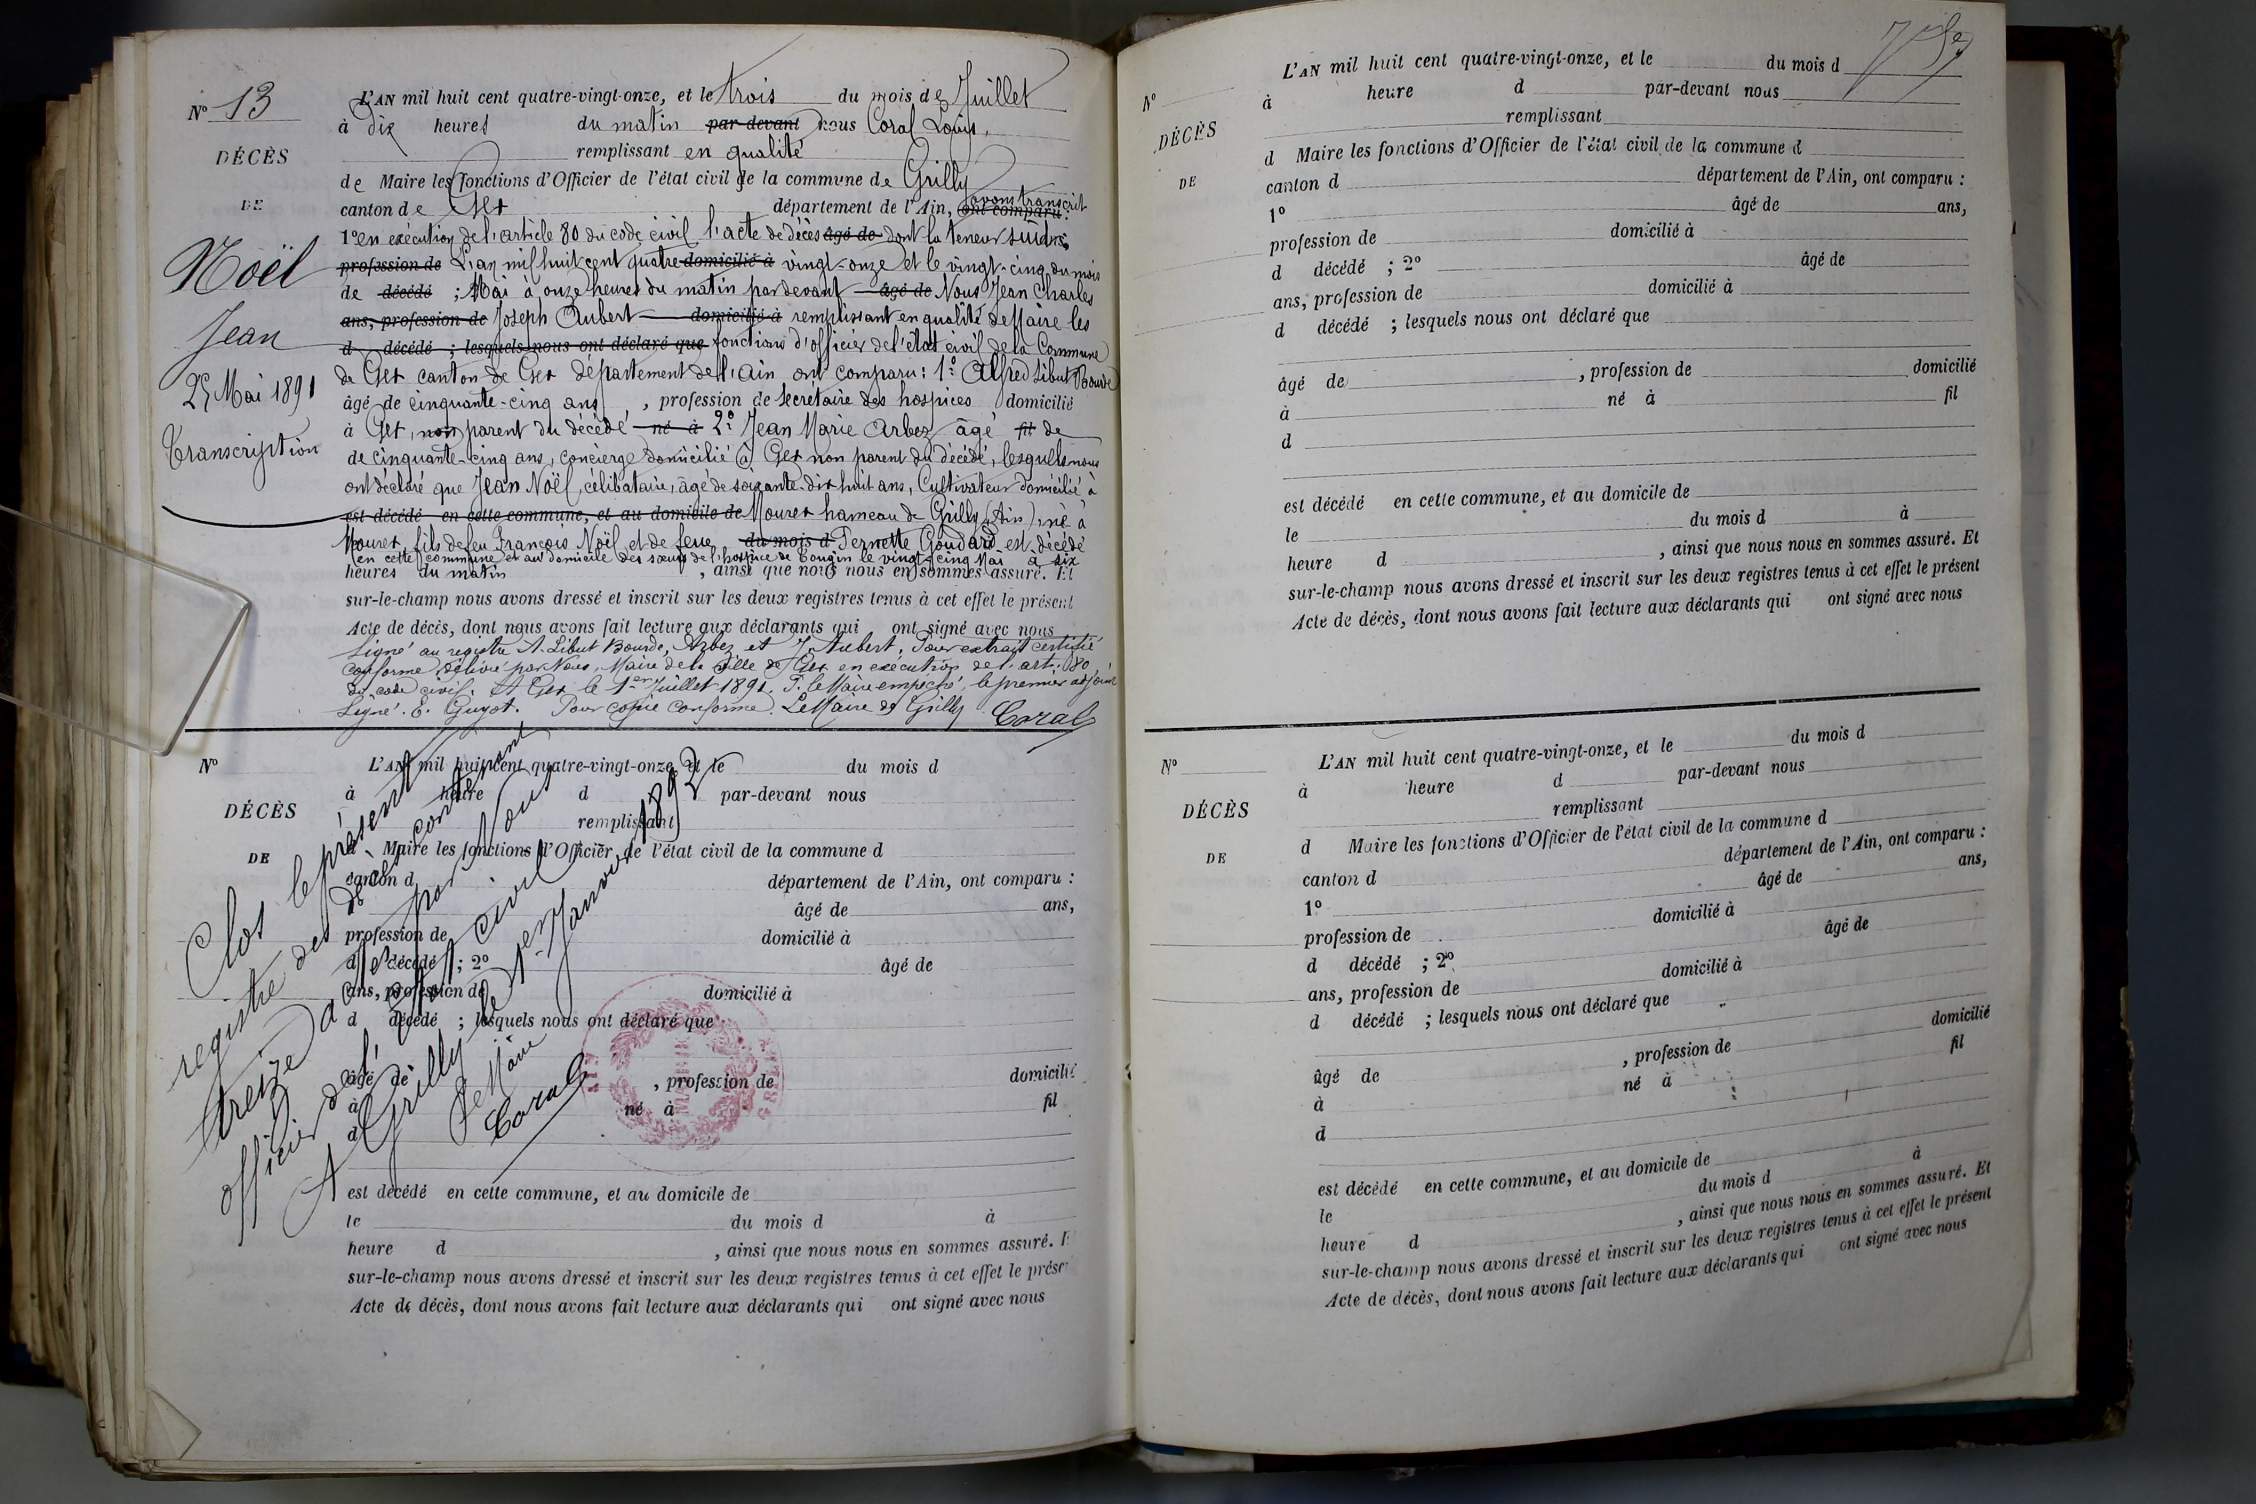 N° 13
DÉCÈS
DE
Noël
Jean
25 Mai 1891
Transcription
L'AN mil huit cent quatre-vingt-onze, et le trois du mois de Juillet
à dix heures du matin par-devant nous Coral Louis,
remplissant en qualité
de Maire les fonctions d'Officier de l'état civil de la commune de Grilly
canton de Gex département de l'Ain, ont comparu : avons transcrit
1° en exécution de l'article 80 du code civil l'acte de décès âgé de dont la teneur suit :
profession de L'an mil huit cent quatre domicilié à vingt-onze et le vingt-cinq du mois
de décédé ; Mai à onze heures du matin pardevant âgé de Nous Jean Charles
ans, profession de Joseph Aubert domicilié à remplissant en qualité de Maire les
d décédé ; lesquels nous ont déclaré que fonctions d'officier de l'état civil de la Commune
de Gex canton de Gex département de l'Ain ont comparu : 1° Alfred Libut Bourde
âgé de cinquante-cinq ans, profession de Secrétaire des hospices domicilié
à Gex, non parent du décédé né à 2° Jean Marie Arbez âgé fil de
de cinquante-cinq ans, concierge domicilié à Gex non parent du décédé, lesquels nous
ont déclaré que Jean Noël, célibataire, âgé de soixante-dix huit ans, Cultivateur domicilié à
est décédé en cette commune, et au domicile de Mourex hameau de Grilly (Ain), né à
Mourex fils de feu François Noël et de feue du mois d Pernette Goudard est décédé
en cette commune et au domicile des sœurs de l'hospice de Tougin le vingt-cinq Mai à six
heures du matin , ainsi que nous nous en sommes assuré. Et
sur-le-champ nous avons dressé et inscrit sur les deux registres tenus à cet effet le présent
Acte de décès, dont nous avons fait lecture aux déclarants qui ont signé avec nous
Signé au registre A. Libut Bourde, Arbez et J. Aubert. Pour extrait certifié
conforme délivré par Nous, Maire de la Ville de Gex en exécution de l'art. 80
du code civil. A Gex le 1er Juillet 1891. P. le Maire empêché, le premier adjoint
Signé : E. Guyot. Pour copie conforme. Le Maire de Grilly Coral
N°
DÉCÈS
DE
L'AN mil huit cent quatre-vingt-onze, et le du mois d
à heure d par-devant nous
remplissant
d Maire les fonctions d'Officier de l'état civil de la commune d
canton d département de l'Ain, ont comparu :
1° âgé de ans,
profession de domicilié à
d décédé ; 2° âgé de
ans, profession de domicilié à
d décédé ; lesquels nous ont déclaré que
âgé de , profession de domicilié
à né à fil
d
est décédé en cette commune, et au domicile de
le du mois d à
heure d , ainsi que nous nous en sommes assuré. E
sur-le-champ nous avons dressé et inscrit sur les deux registres tenus à cet effet le prése
Acte de décès, dont nous avons fait lecture aux déclarants qui ont signé avec nous
Clos le présent
registre des décès contenant
treize actes par Nous
officier de l'état civil
A Grilly le 1er Janvier 1892
Le Maire
Coral
MAIRIE
N°
DÉCÈS
DE
L'AN mil huit cent quatre-vingt-onze, et le du mois d
à heure d par-devant nous
remplissant
d Maire les fonctions d'Officier de l'état civil de la commune d
canton d département de l'Ain, ont comparu :
1° âgé de ans,
profession de domicilié à
d décédé ; 2° âgé de
ans, profession de domicilié à
d décédé ; lesquels nous ont déclaré que
âgé de , profession de domicilié
à né à fil
d
est décédé en cette commune, et au domicile de
le du mois d à
heure d , ainsi que nous nous en sommes assuré. Et
sur-le-champ nous avons dressé et inscrit sur les deux registres tenus à cet effet le présent
Acte de décès, dont nous avons fait lecture aux déclarants qui ont signé avec nous
N°
DÉCÈS
DE
L'AN mil huit cent quatre-vingt-onze, et le du mois d
à heure d par-devant nous
remplissant
d Maire les fonctions d'Officier de l'état civil de la commune d
canton d département de l'Ain, ont comparu :
1° âgé de ans,
profession de domicilié à
d décédé ; 2° âgé de
ans, profession de domicilié à
d décédé ; lesquels nous ont déclaré que
âgé de , profession de domicilié
à né à fil
d
est décédé en cette commune, et au domicile de
le du mois d à
heure d , ainsi que nous nous en sommes assuré. Et
sur-le-champ nous avons dressé et inscrit sur les deux registres tenus à cet effet le présent
Acte de décès, dont nous avons fait lecture aux déclarants qui ont signé avec nous